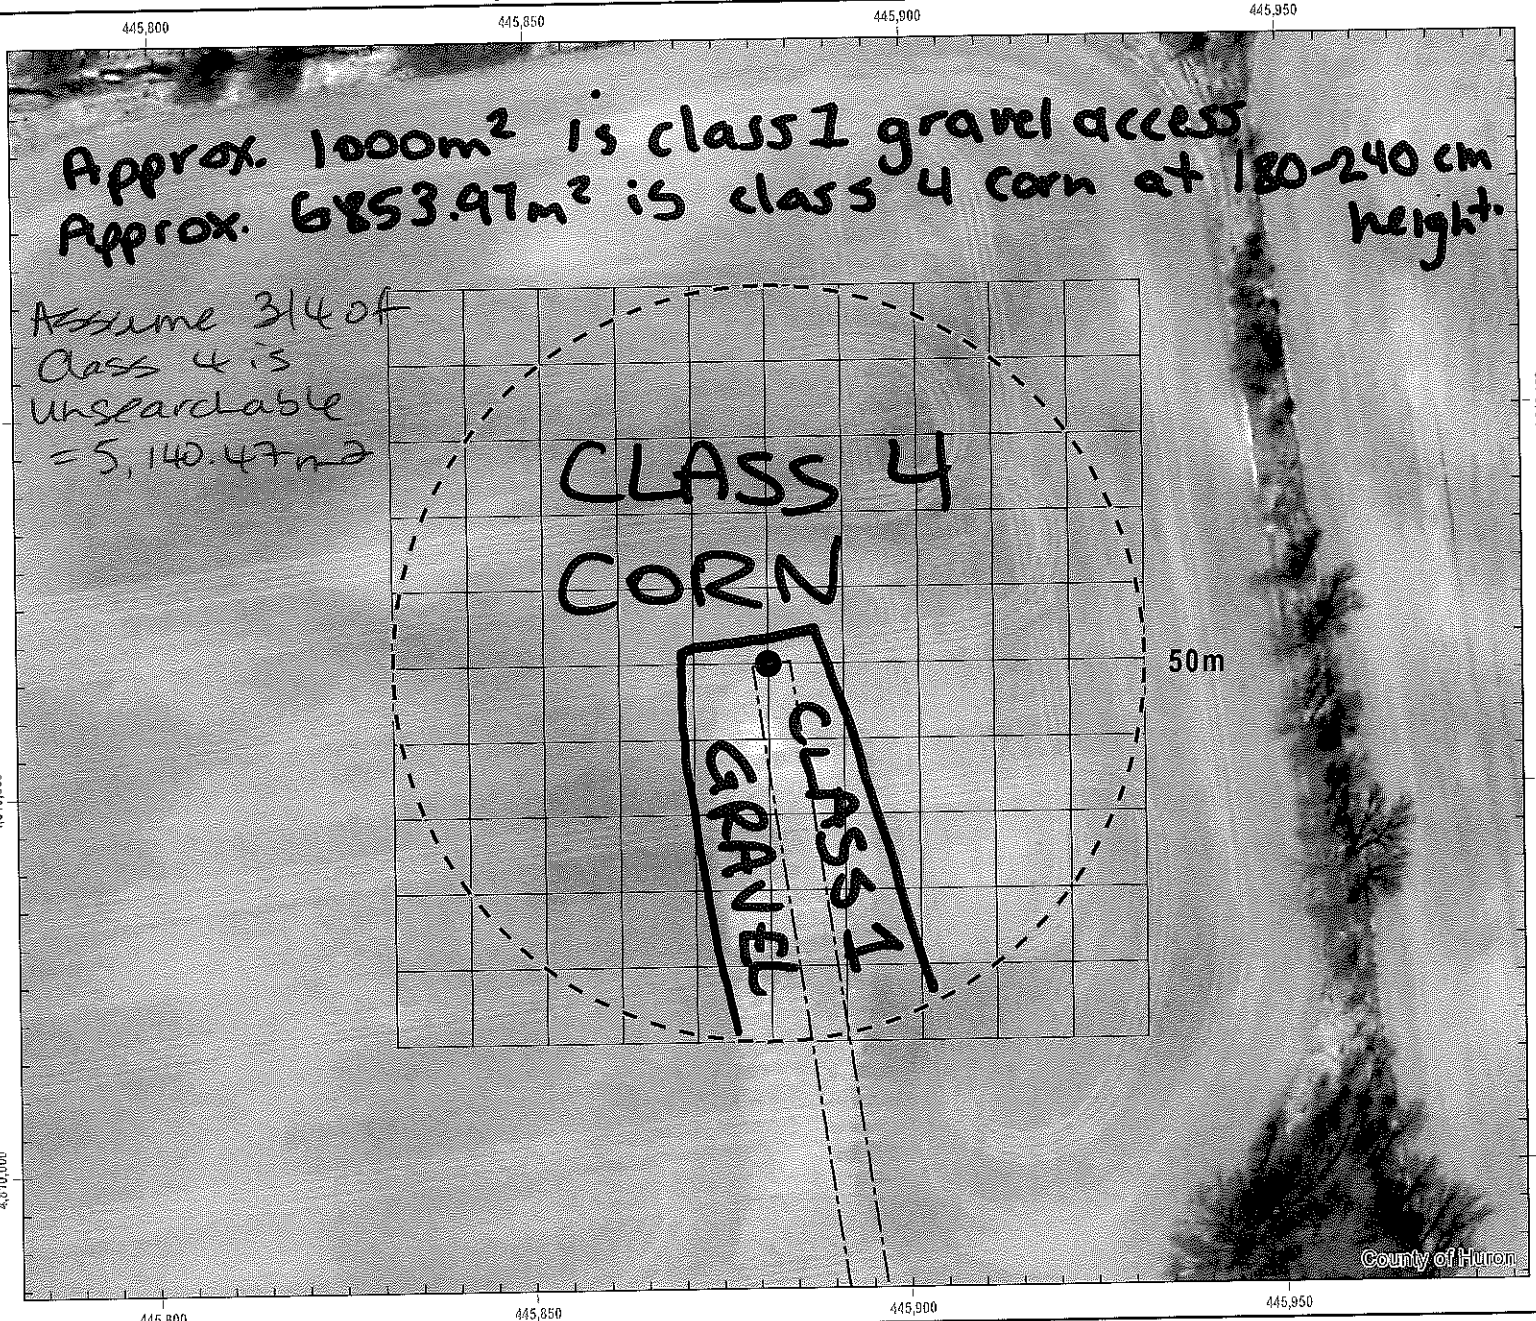 445,800 445,850 445,900 445,950
Approx. 1000m² is class 1 gravel access
Approx. 6853.97m² is class 4 corn at 180-240 cm
height.
Assume 3/4 of
Class 4 is
unsearchable
= 5,140.47m²
CLASS 4
CORN
50m
CLASS 1
GRAVEL
County of Huron
445,850 445,900 445,950